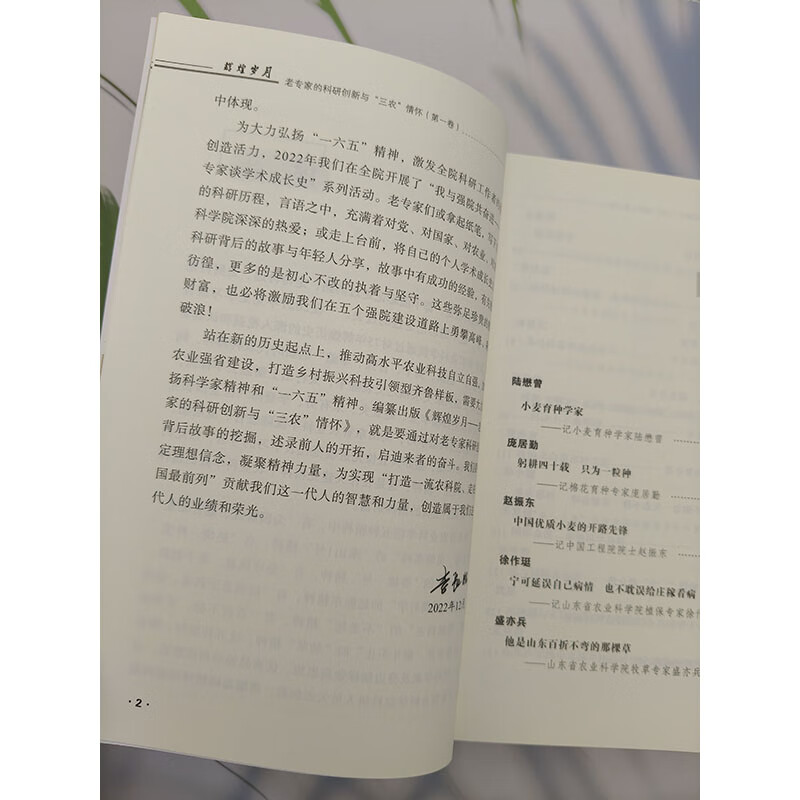 辉煌岁月
老专家的科研创新与“三农”情怀（第一卷）
中体现。
为大力弘扬“一六五”精神，激发全院科研工作者
创造活力，2022年我们在全院开展了“我与强院共奋进
专家谈学术成长史”系列活动。老专家们或拿起纸笔，写下
的科研历程，言语之中，充满着对党、对国家、对农业、
科学院深深的热爱；或走上台前，将自己的个人学术成长
科研背后的故事与年轻人分享，故事中有成功的经验，
彷徨，更多的是初心不改的执着与坚守。这些弥足珍贵的
财富，也必将激励我们在五个强院建设道路上勇攀高峰、
破浪！
站在新的历史起点上，推动高水平农业科技自立自强，
农业强省建设，打造乡村振兴科技引领型齐鲁样板，需要大
扬科学家精神和“一六五”精神。编纂出版《辉煌岁月——
家的科研创新与“三农”情怀》，就是要通过对老专家科研
背后故事的挖掘，述录前人的开拓，启迪来者的奋斗。我们
定理想信念，凝聚精神力量，为实现“打造一流农科院、走
国最前列”贡献我们这一代人的智慧和力量，创造属于我们
代人的业绩和荣光。
2022年12月
·2·
陆懋曾
小麦育种学家
——记小麦育种学家陆懋曾
庞居勤
躬耕四十载 只为一粒种
——记棉花育种专家庞居勤
赵振东
中国优质小麦的开路先锋
——记中国工程院院士赵振东
徐作珽
宁可延误自己病情 也不耽误给庄稼看病
——记山东省农业科学院植保专家徐作
盛亦兵
他是山东百折不弯的那棵草
——山东省农业科学院牧草专家盛亦兵